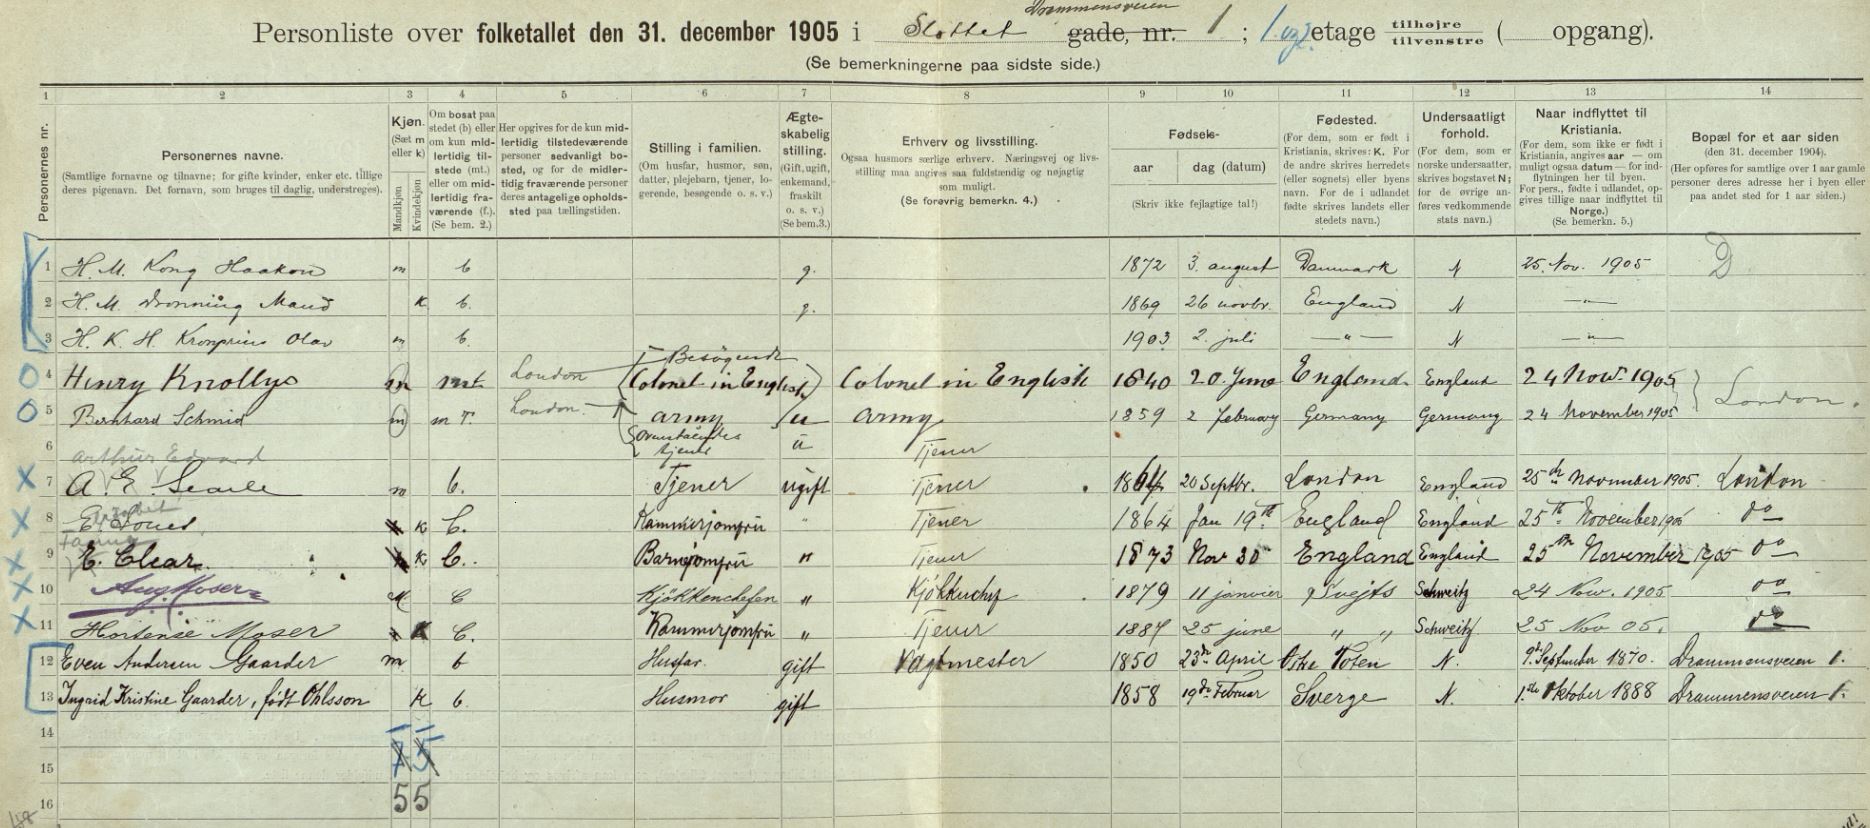 Drammensveien
Personliste over folketallet den 31. december 1905 i Slottet gade, nr. 1; 1 etage tilhøjre tilvenstre ( opgang).
(Se bemerkningerne paa sidste side.)
1 2 3 4 5 6 7 8 9 10 11 12 13 14
Personernes nr.
Personernes navne.
(Samtlige fornavne og tilnavne; for gifte kvinder, enker etc. tillige deres pigenavn. Det fornavn, som bruges til daglig, understreges).
Kjøn.
(Sæt m eller k)
Mandkjøn
Kvindekjøn
Om bosat paa stedet (b) eller om kun midlertidig tilstede (mt.) eller om midlertidig fraværende (f.).
(Se bem. 2.)
Her opgives for de kun midlertidig tilstedeværende personer sedvanligt bosted, og for de midlertidig fraværende personer deres antagelige opholdssted paa tællingstiden.
Stilling i familien.
(Om husfar, husmor, søn, datter, plejebarn, tjener, logerende, besøgende o. s. v.)
Ægteskabelig stilling.
(Gift, ugift, enkemand, fraskilt o. s. v.)
(Se bem.3.)
Erhverv og livsstilling.
Ogsaa husmors særlige erhverv. Næringsvej og livsstilling maa angives saa fuldstændig og nøjagtig som muligt.
(Se forøvrig bemerkn. 4.)
Fødsels-
aar dag (datum)
(Skriv ikke fejlagtige tal!)
Fødested.
(For dem, som er født i Kristiania, skrives: K. For de andre skrives herredets (eller sognets) eller byens navn. For de i udlandet fødte skrives landets eller stedets navn.)
Undersaatligt forhold.
(For dem, som er norske undersaatter, skrives bogstavet N; for de øvrige anføres vedkommende stats navn.)
Naar indflyttet til Kristiania.
(For dem, som ikke er født i Kristiania, angives aar — om muligt ogsaa datum — for indflytningen her til byen. For pers., fødte i udlandet, opgives tillige naar indflyttet til Norge.)
(Se bemerkn. 5.)
Bopæl for et aar siden
(den 31. december 1904).
(Her opføres for samtlige over 1 aar gamle personer deres adresse her i byen eller paa andet sted for 1 aar siden.)
1 H. M. Kong Haakon m b g. 1872 3. august Danmark N 25. Nov. 1905 D
2 H. M. Dronning Maud k b. g. 1869 26 novbr. England N —"—
3 H. K. H. Kronprins Olav m b. 1903 2. juli —"— N —"—
Besøgende
4 Henry Knollys m mt London (Colonel in English) Colonel in English 1840 20. June England England 24 Nov. 1905 London.
5 Bernhard Schmid m m T. London. army u army 1859 2 February Germany Germany 24 November 1905
6 ovenståendes tjener u Tjener
Arthur Edward
7 A. E. Searle m b. Tjener ugift Tjener 1864 20 Septbr. London England 25 November 1905. London
Elizabeth
8 k b. Kammerjomfru " Tjener 1864 Jan 19th England England 25th November 1905 do
Fanny
9 E. Clear k b. Barnejomfru " Tjener 1873 Nov 30 England England 25th November 1905 do
10 Aug. Moser M b Kjøkkenchefen " Kjøkkenchef 1879 11 janvier Svejts Schweitz 24 Nov. 1905 do
11 Hortense Moser K b. Kammerjomfru " Tjener 1887 25 june " " Schweitz 25 Nov 05. do
12 Even Andersen Gaarder m b Husfar. gift Vagtmester 1850 23de April Østre Toten N. 9de September 1870. Drammensveien 1.
13 Ingrid Kristine Gaarder, født Ohlsson k b. Husmor gift 1858 19de Februar Sverge N. 1ste Oktober 1888 Drammensveien 1.
14
15 7 5
16 5 5